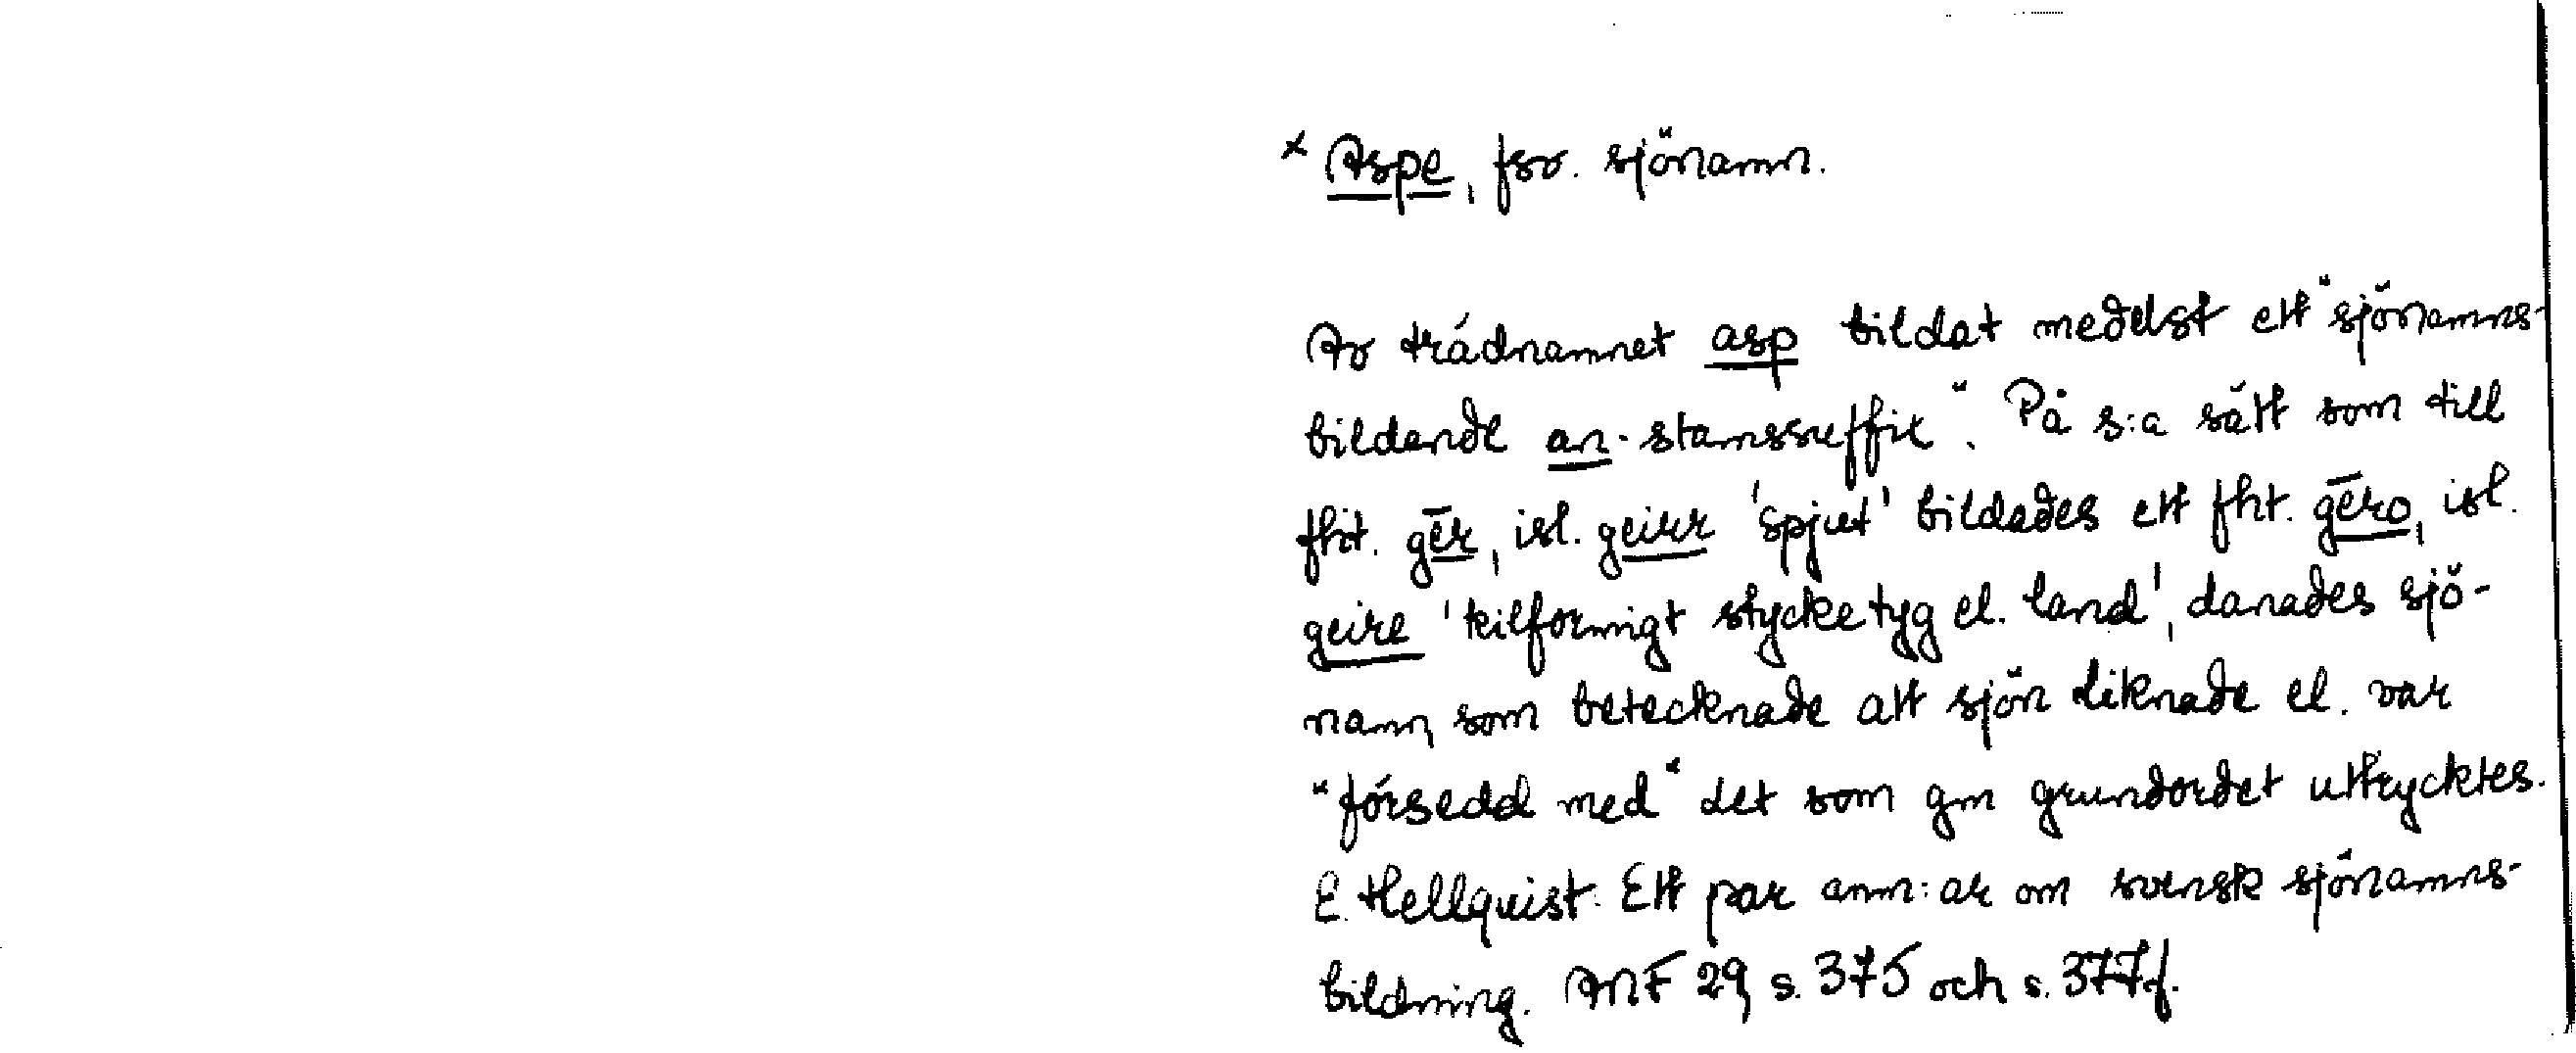 * Aspe, fsv. sjönamn.
Av trädnamnet asp bildat medelst ett "sjönamns-
bildande an-stamssuffix". På s:a sätt som till
fht. gēr, isl. geirr 'spjut' bildades ett fht. gēro, isl.
geire 'kilformigt stycke tyg el. land', danades sjö-
namn, som betecknade att sjön liknade el. var
"försedd med" det som gm grundordet uttrycktes.
E. Hellquist. Ett par anm:ar om svensk sjönamns-
bildning. ANF 29, s. 375 och s. 377 f.